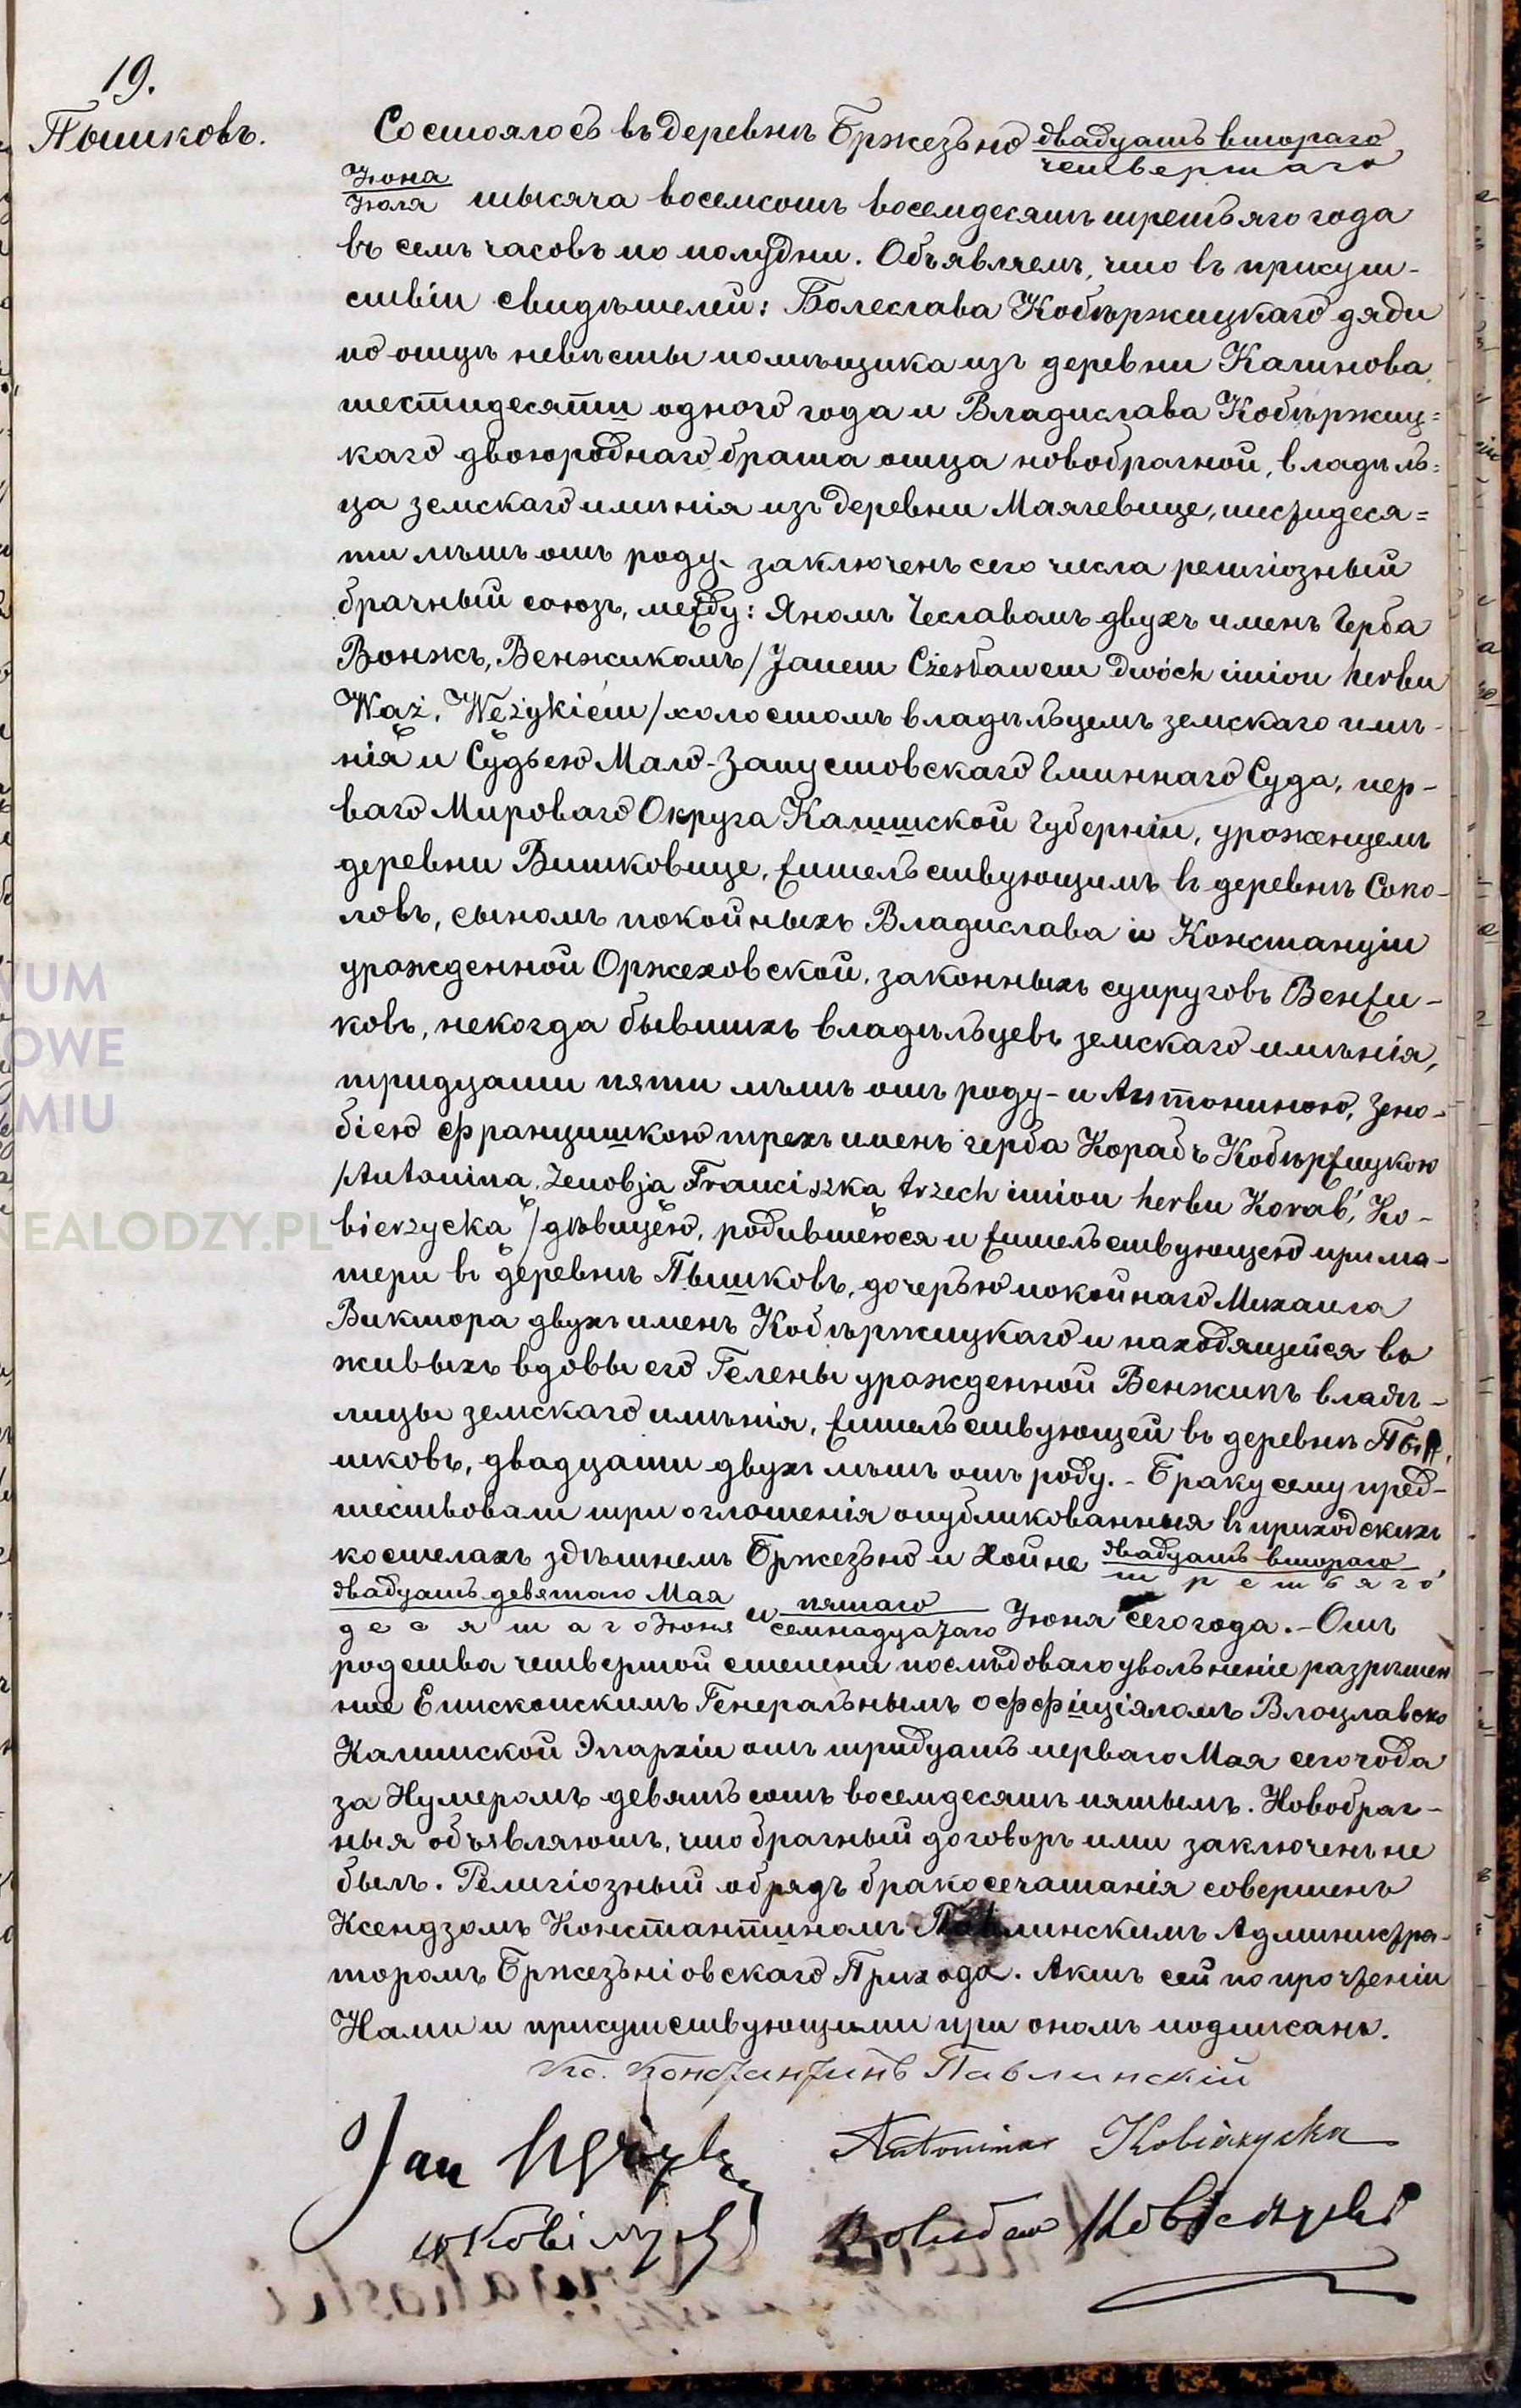 19.
Пышковъ.
Состоялось въ деревнѣ Бржезьно двадцать втораго
четвертаго
Іюня
Іюля тысяча восемсотъ восемдесятъ третьяго года
въ семь часовъ по полудни. Объявляемъ, что въ присут-
ствіи свидѣтелей: Болеслава Кобѣржицкаго дяди
по отцѣ невѣсты помѣщика изъ деревни Калинова
шестидесяти одного года и Владислава Кобѣржиц=
каго двоюроднаго брата отца новобрачной, владѣль=
ца земскаго имѣнія изъ деревни Маячевице, шестидеся=
ти лѣтъ отъ роду, заключенъ сего числа религіозный
брачный союзъ, между: Яномъ Чеславомъ двухъ именъ Герба
Вонжъ, Венжикомъ /Janem Czesławem dwóch imion herbu
Wąż, Wężykiem/ холостомъ владѣльцемъ земскаго имѣ-
нія и Судьею Мало-Запустовскаго Гминнаго Суда, пер-
ваго Мироваго Округа Калишской Губерніи, уроженцемъ
деревни Вишковице, жительствующимъ въ деревнѣ Соко-
ловъ, сыномъ покойныхъ Владислава и Констанціи
урожденной Оржеховской, законныхъ супруговъ Венжи-
ковъ, некогда бывшихъ владѣльцевъ земскаго имѣнія,
тридцати пяти лѣтъ отъ роду - и Антониною, Зено-
біею Францишкою трехъ именъ герба Корабъ Кобѣржицкою
/Antonina, Zenobja Franciszka trzech imion herbu Korab', Ko-
bierzycka/ дѣвицею, родившеюся и жительствующею при ма-
тери въ деревнѣ Пышковъ, дочерью покойнаго Михаила
Виктора двухъ именъ Кобѣржицкаго и находящейся въ
живыхъ вдовы его Гелены урожденной Венжикъ владѣ-
лицы земскаго имѣнія, жительствующей въ деревнѣ Пы-
шковъ, двадцати двухъ лѣтъ отъ роду. - Браку сему пред-
шествовали три оглошенія опубликованныя въ приходскихъ
костелахъ здѣшнемъ Бржезьно и Хойне двадцать втораго
третьяго,
двадцать девятаго Мая
десятаго Іюня и пятаго
семнадцатаго Іюня сего года. - Отъ
родства четвертой степени послѣдовало увольненіе разрѣшен
ние Епископскимъ Генеральнымъ Оффиціяломъ Влоцлавско
Калишской Эпархіи отъ тридцать перваго Мая сего года
за Нумеромъ девятьсотъ восемдесятъ пятымъ. Новобрач-
ныя объявляютъ, что брачный договоръ ими заключенъ не
былъ. Религіозный обрядъ бракосечатанія совершенъ
Ксендзомъ Константиномъ Павлинскимъ Администра-
торомъ Бржезьніовскаго Прихода. Актъ сей по прочтеніи
Нами и присутствующими при ономъ подписанъ.
Кс. Константинъ Павлинскій
Jan Wężyk
Antonina Kobierzycka
W Kobierzycki
Bolesław Kobierzycki